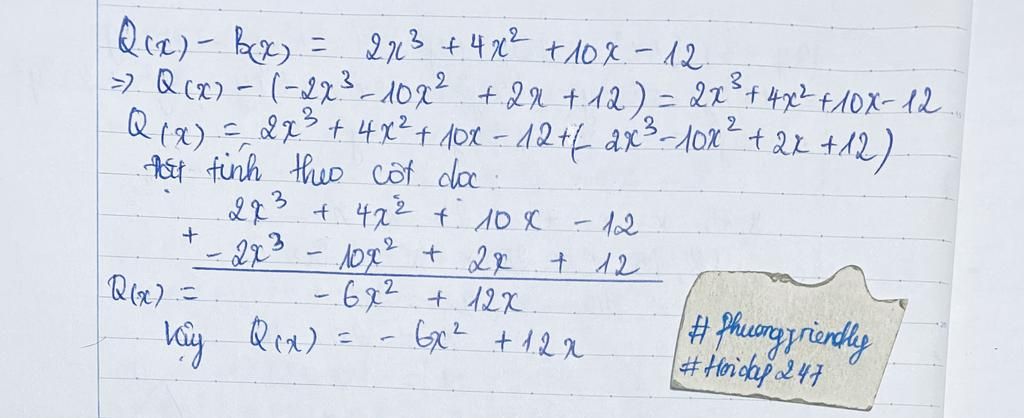 Q(x) - B(x) = 2x³ + 4x² + 10x - 12
=> Q(x) - (-2x³ - 10x² + 2x + 12) = 2x³ + 4x² + 10x - 12
Q(x) = 2x³ + 4x² + 10x - 12 + (- 2x³ - 10x² + 2x + 12)
tính theo cột dọc:
2x³ + 4x² + 10x - 12
+
- 2x³ - 10x² + 2x + 12
Q(x) = - 6x² + 12x
Vậy Q(x) = - 6x² + 12x
# Phuongfriendly
# Hoidap247